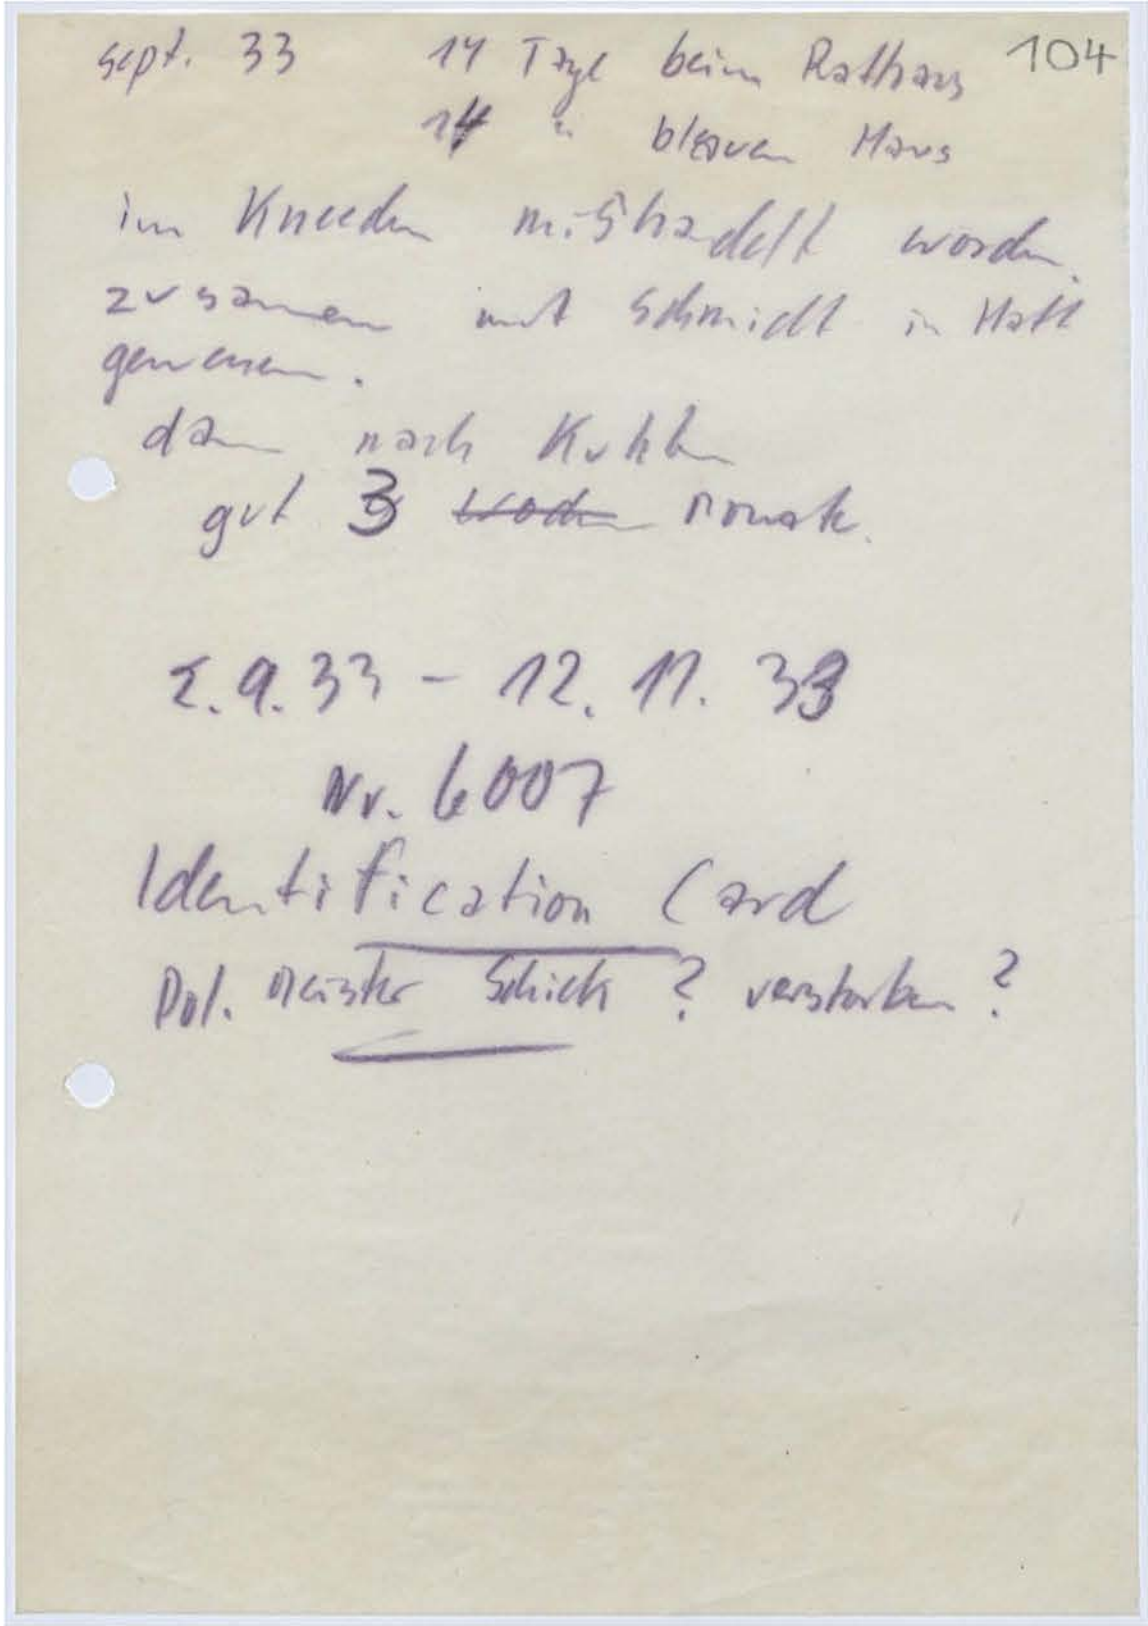 sept. 33 14 Tage beim Rathaus 104
14 " blauen Haus
im mißhandelt worden.
zusamen mit Schmidt in Haft
gewesen.
dann nach Kuhlen
gut 3 Wochen Monate.
2.9.33 - 12. 11. 33
Nr. 6007
Identification Card
Pol. Meister Schick ? verstorben ?